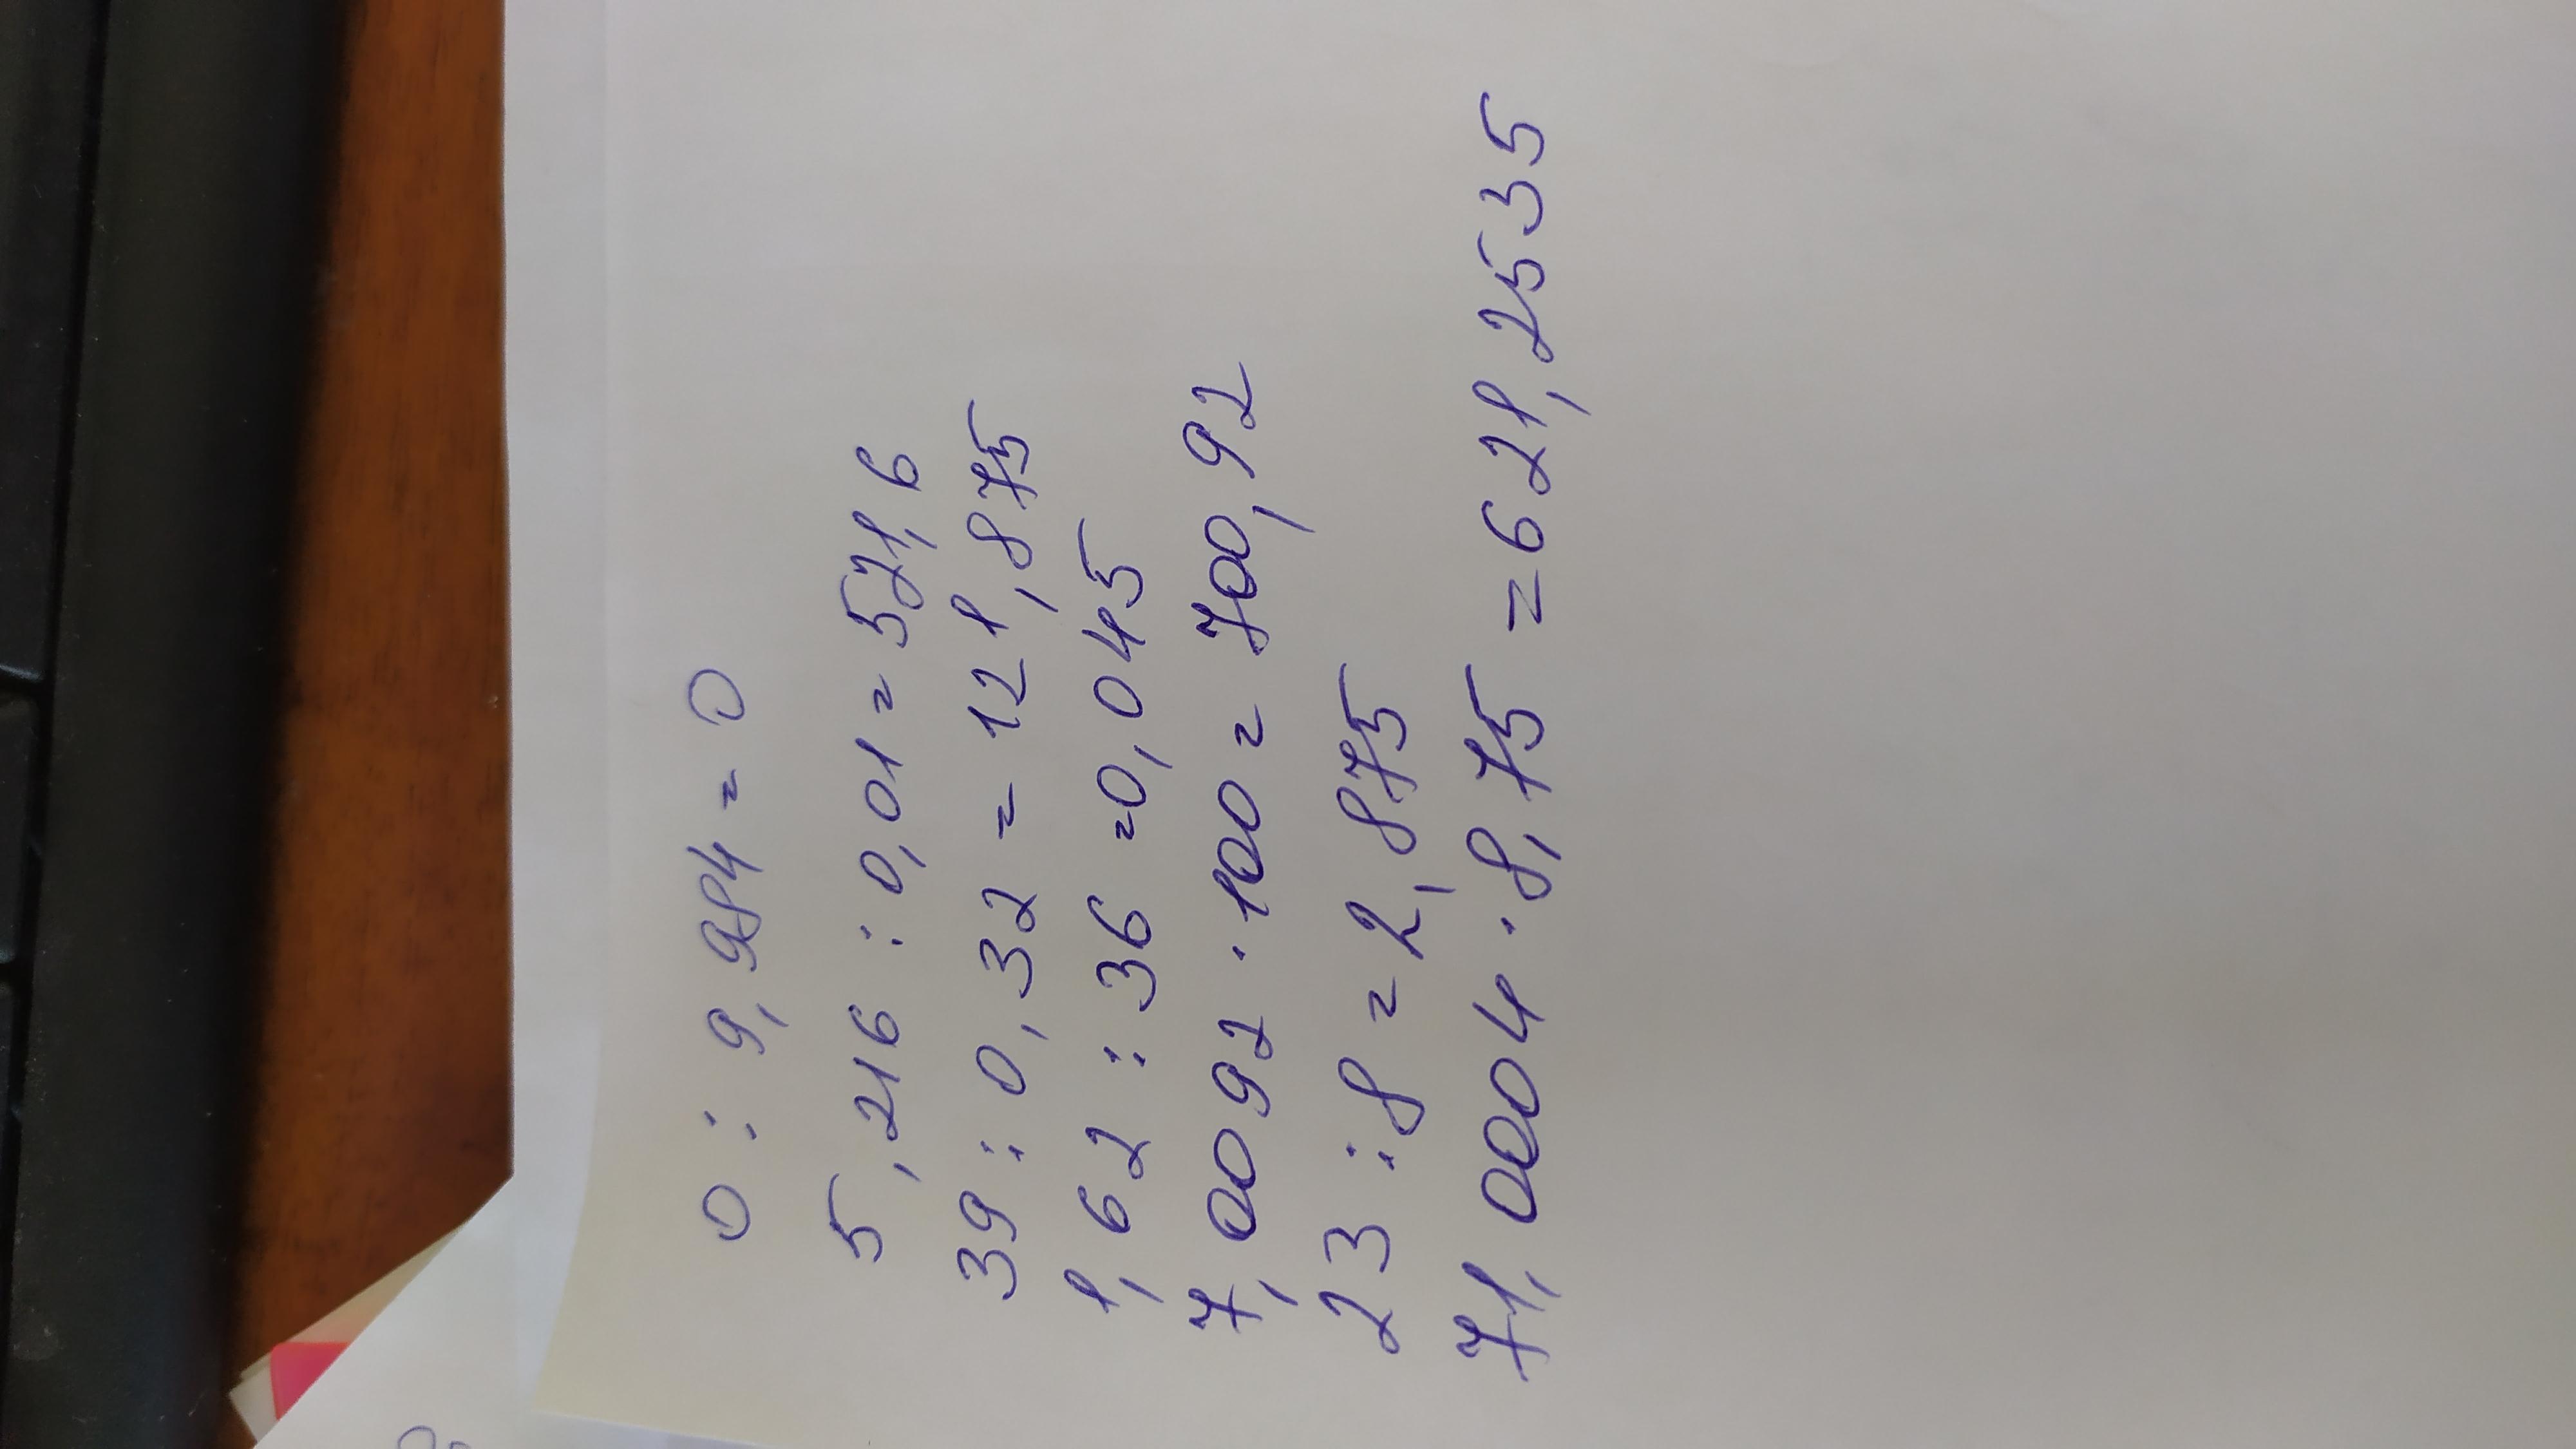 0 : 9,984 = 0
5,216 : 0,01 = 521,6
39 : 0,32 = 121,875
1,62 : 36 = 0,045
7,0092 · 100 = 700,92
23 : 8 = 2,875
71,0004 · 8,75 = 621,2535